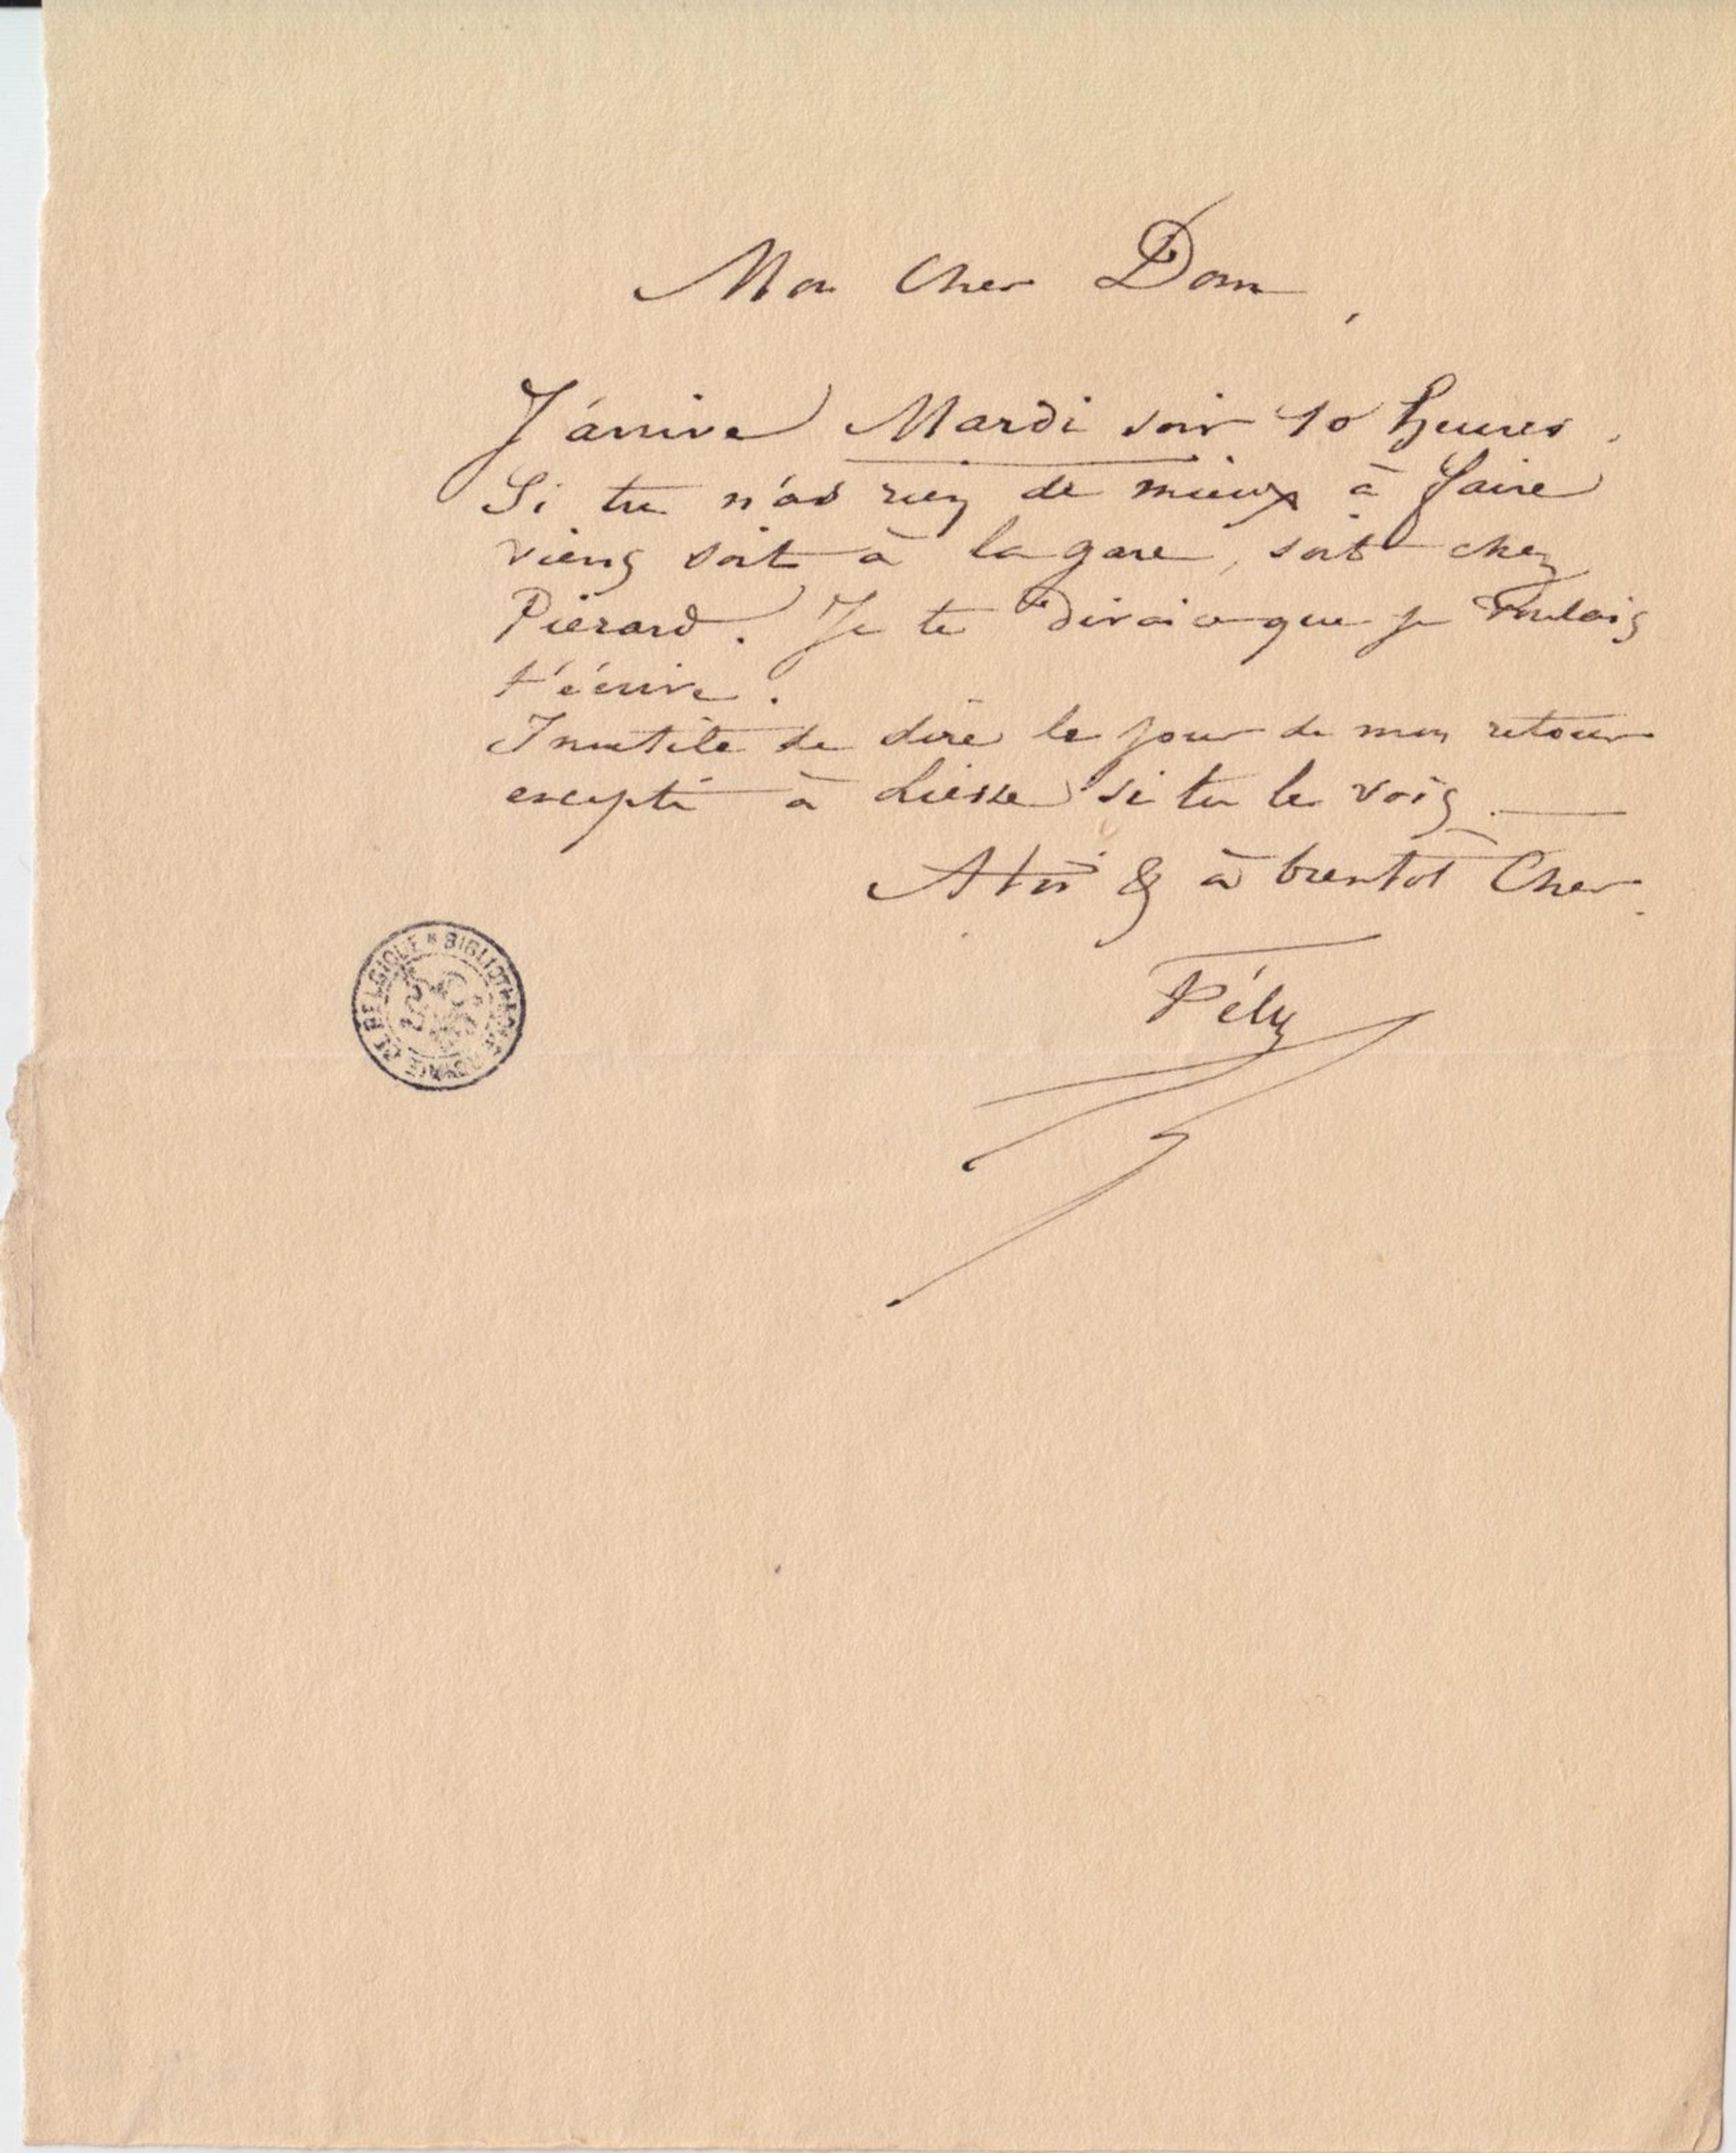 Mon Cher Dom,
J'arrive Mardi soir 10 heures.
Si tu n'as rien de mieux à faire
viens soit à la gare, soit chez
Piérard. Je te dirai ce que je voulais
t'écrire.
Inutile de dire le jour de mon retour
excepté à Liesse si tu le vois.
& à bientôt Cher.
Fély
BIBLIOTHEQUE ROYALE DE BELGIQUE *